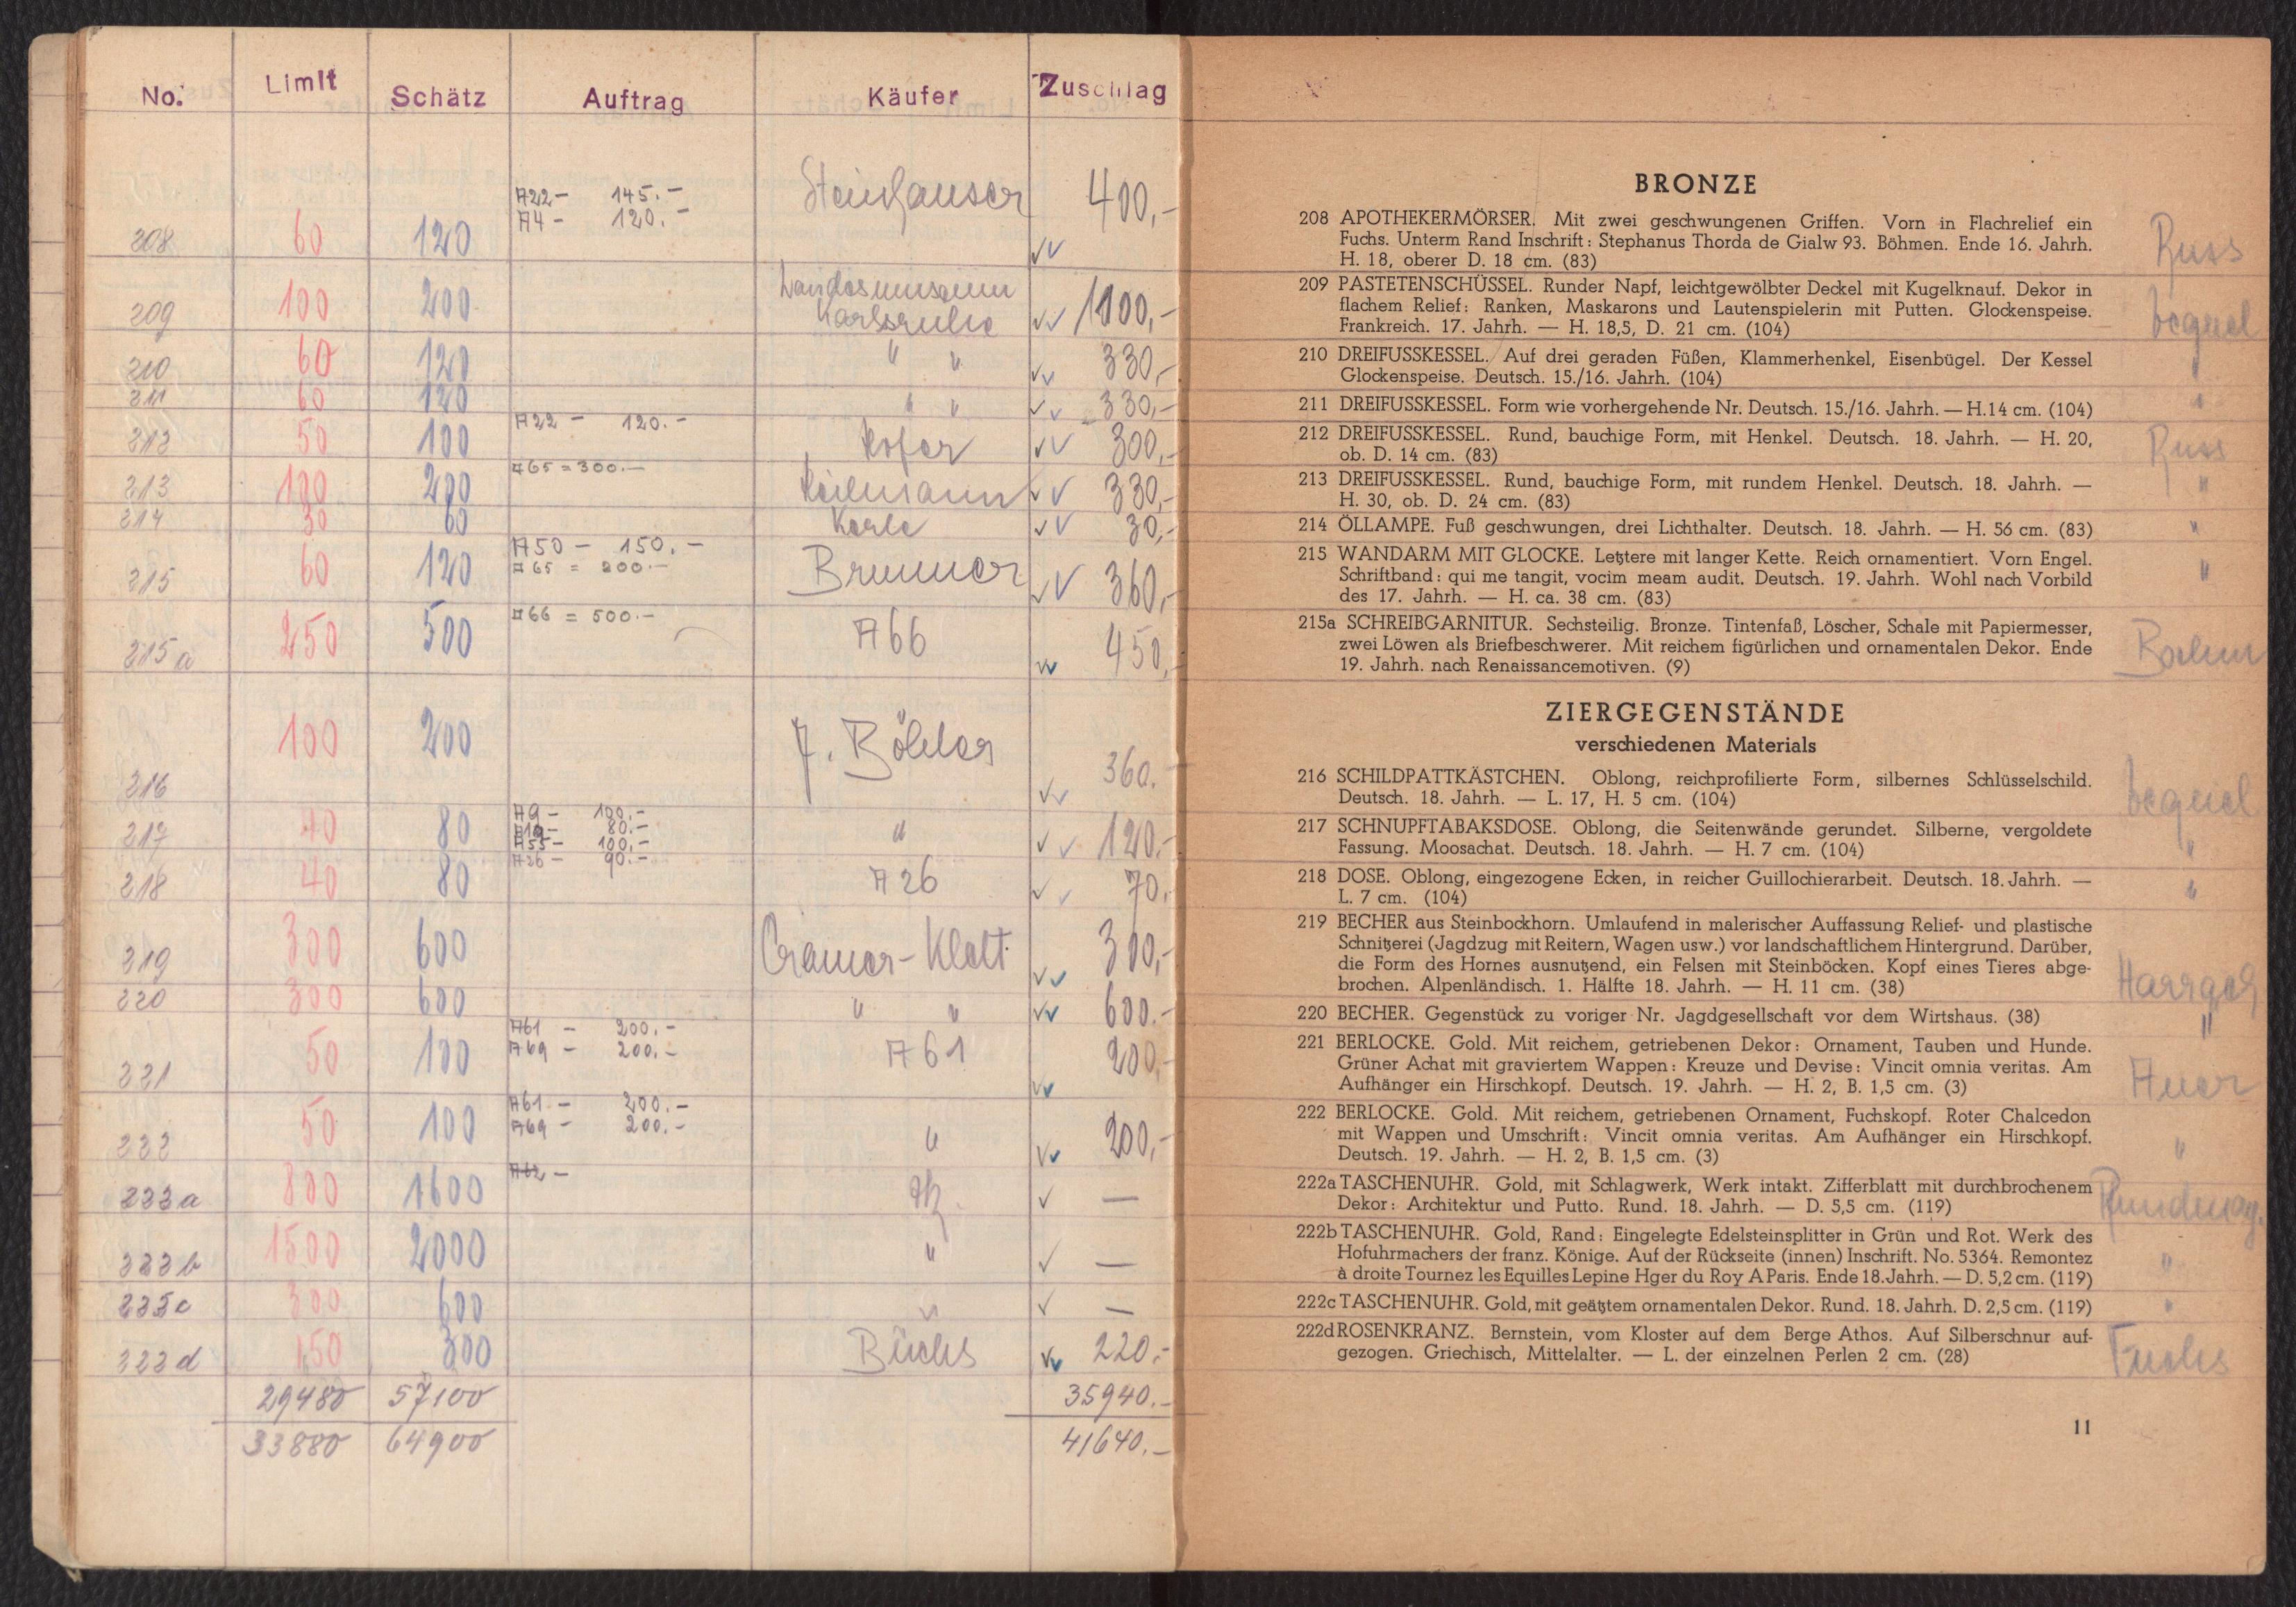 No. Limit Schätz Auftrag Käufer Zuschlag
A22 – 145.–
A4 – 120.–
208 60 120 Steinhauser 400,–
209 100 200 Landesmuseum
Karlsruhe 1100,–
210 60 120 " " 330,–
211 60 120 " " 330,–
A22 – 120.–
212 50 100 Kofer 300,–
A65 = 300.–
213 100 200 330,–
214 30 60 Karle 30,–
A50 – 150.–
A65 = 200.–
215 60 120 Brunner 360,–
A66 = 500.–
215a 250 500 A66 450,–
216 100 200 360.–
A9 – 100.–
A19 – 80.–
A55 – 100.–
217 40 80 " 120.–
A26 – 90.–
218 40 80 A26 70.–
219 300 600 Cramer-Klett 300,–
220 300 600 " " 600.–
A61 – 200.–
A69 – 200.–
221 50 100 A61 200,–
A61 – 200.–
A69 – 200.–
222 50 100 " 200,–
A62 –
222a 800 1600 –
222b 1500 2000 " –
222c 300 600 " –
222d 150 300 Büchs 220.–
29480 57100 35940.–
33880 64900 41640.–
BRONZE
208 APOTHEKERMÖRSER. Mit zwei geschwungenen Griffen. Vorn in Flachrelief ein
Fuchs. Unterm Rand Inschrift: Stephanus Thorda de Gialw 93. Böhmen. Ende 16. Jahrh.
H. 18, oberer D. 18 cm. (83)
Russ
209 PASTETENSCHÜSSEL. Runder Napf, leichtgewölbter Deckel mit Kugelknauf. Dekor in
flachem Relief: Ranken, Maskarons und Lautenspielerin mit Putten. Glockenspeise.
Frankreich. 17. Jahrh. — H. 18,5, D. 21 cm. (104)
210 DREIFUSSKESSEL. Auf drei geraden Füßen, Klammerhenkel, Eisenbügel. Der Kessel
Glockenspeise. Deutsch. 15./16. Jahrh. (104)
"
211 DREIFUSSKESSEL. Form wie vorhergehende Nr. Deutsch. 15./16. Jahrh. — H. 14 cm. (104)
"
212 DREIFUSSKESSEL. Rund, bauchige Form, mit Henkel. Deutsch. 18. Jahrh. — H. 20,
ob. D. 14 cm. (83)
Russ
213 DREIFUSSKESSEL. Rund, bauchige Form, mit rundem Henkel. Deutsch. 18. Jahrh. —
H. 30, ob. D. 24 cm. (83)
"
214 ÖLLAMPE. Fuß geschwungen, drei Lichthalter. Deutsch. 18. Jahrh. — H. 56 cm. (83)
"
215 WANDARM MIT GLOCKE. Letztere mit langer Kette. Reich ornamentiert. Vorn Engel.
Schriftband: qui me tangit, vocim meam audit. Deutsch. 19. Jahrh. Wohl nach Vorbild
des 17. Jahrh. — H. ca. 38 cm. (83)
"
215a SCHREIBGARNITUR. Sechsteilig. Bronze. Tintenfaß, Löscher, Schale mit Papiermesser,
zwei Löwen als Briefbeschwerer. Mit reichem figürlichen und ornamentalen Dekor. Ende
19. Jahrh. nach Renaissancemotiven. (9)
ZIERGEGENSTÄNDE
verschiedenen Materials
216 SCHILDPATTKÄSTCHEN. Oblong, reichprofilierte Form, silbernes Schlüsselschild.
Deutsch. 18. Jahrh. — L. 17, H. 5 cm. (104)
217 SCHNUPFTABAKSDOSE. Oblong, die Seitenwände gerundet. Silberne, vergoldete
Fassung. Moosachat. Deutsch. 18. Jahrh. — H. 7 cm. (104)
"
218 DOSE. Oblong, eingezogene Ecken, in reicher Guillochierarbeit. Deutsch. 18. Jahrh. —
L. 7 cm. (104)
"
219 BECHER aus Steinbockhorn. Umlaufend in malerischer Auffassung Relief- und plastische
Schnitzerei (Jagdzug mit Reitern, Wagen usw.) vor landschaftlichem Hintergrund. Darüber,
die Form des Hornes ausnutzend, ein Felsen mit Steinböcken. Kopf eines Tieres abge-
brochen. Alpenländisch. 1. Hälfte 18. Jahrh. — H. 11 cm. (38)
220 BECHER. Gegenstück zu voriger Nr. Jagdgesellschaft vor dem Wirtshaus. (38)
"
221 BERLOCKE. Gold. Mit reichem, getriebenen Dekor: Ornament, Tauben und Hunde.
Grüner Achat mit graviertem Wappen: Kreuze und Devise: Vincit omnia veritas. Am
Aufhänger ein Hirschkopf. Deutsch. 19. Jahrh. — H. 2, B. 1,5 cm. (3)
Auer
222 BERLOCKE. Gold. Mit reichem, getriebenen Ornament, Fuchskopf. Roter Chalcedon
mit Wappen und Umschrift: Vincit omnia veritas. Am Aufhänger ein Hirschkopf.
Deutsch. 19. Jahrh. — H. 2, B. 1,5 cm. (3)
"
222a TASCHENUHR. Gold, mit Schlagwerk, Werk intakt. Zifferblatt mit durchbrochenem
Dekor: Architektur und Putto. Rund. 18. Jahrh. — D. 5,5 cm. (119)
222b TASCHENUHR. Gold, Rand: Eingelegte Edelsteinsplitter in Grün und Rot. Werk des
Hofuhrmachers der franz. Könige. Auf der Rückseite (innen) Inschrift. No. 5364. Remontez
à droite Tournez les Equilles Lepine Hger du Roy A Paris. Ende 18. Jahrh. — D. 5,2 cm. (119)
"
222c TASCHENUHR. Gold, mit geätztem ornamentalen Dekor. Rund. 18. Jahrh. D. 2,5 cm. (119)
"
222d ROSENKRANZ. Bernstein, vom Kloster auf dem Berge Athos. Auf Silberschnur auf-
gezogen. Griechisch, Mittelalter. — L. der einzelnen Perlen 2 cm. (28)
Fuchs
11